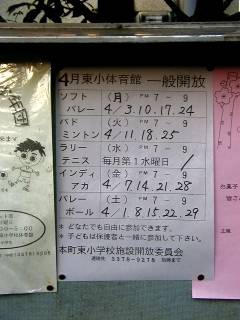 4月東小体育館 一般開放
ソフト (月) PM 7-9
バレー 4/3.10.17.24
バド (火) PM 7-9
ミントン 4/11.18.25
ラリー (水) PM 7-9
テニス 毎月第1水曜日
インディ (金) PM 7-9
アカ 4/7.14.21.28
バレー (土) PM 7-9
ボール 4/1.8.15.22.29
* どなたでも自由に参加できます。
* 子どもは保護者と一緒に参加して下さい。
本町東小学校施設開放委員会
連絡先 3378-9278